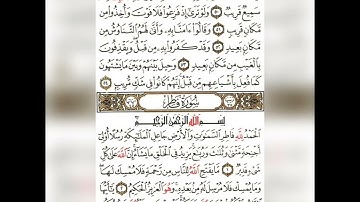 سَمِيعٌ قَرِيبٌ ۝٥٠ وَلَوْ تَرَىٰٓ إِذْ فَزِعُوا۟ فَلَا فَوْتَ وَأُخِذُوا۟ مِن
مَّكَانٍ قَرِيبٍ ۝٥١ وَقَالُوٓا۟ ءَامَنَّا بِهِۦ وَأَنَّىٰ لَهُمُ ٱلتَّنَاوُشُ مِن
مَّكَانٍۭ بَعِيدٍ ۝٥٢ وَقَدْ كَفَرُوا۟ بِهِۦ مِن قَبْلُ ۖ وَيَقْذِفُونَ
بِٱلْغَيْبِ مِن مَّكَانٍۭ بَعِيدٍ ۝٥٣ وَحِيلَ بَيْنَهُمْ وَبَيْنَ مَا يَشْتَهُونَ
كَمَا فُعِلَ بِأَشْيَاعِهِم مِّن قَبْلُ ۚ إِنَّهُمْ كَانُوا۟ فِى شَكٍّ مُّرِيبٍۭ ۝٥٤
سُورَةُ فَاطِرٍ
بِسْمِ ٱللَّهِ ٱلرَّحْمَٰنِ ٱلرَّحِيمِ
ٱلْحَمْدُ لِلَّهِ فَاطِرِ ٱلسَّمَٰوَٰتِ وَٱلْأَرْضِ جَاعِلِ ٱلْمَلَٰٓئِكَةِ رُسُلًا أُو۟لِىٓ
أَجْنِحَةٍ مَّثْنَىٰ وَثُلَٰثَ وَرُبَٰعَ ۚ يَزِيدُ فِى ٱلْخَلْقِ مَا يَشَآءُ ۚ إِنَّ ٱللَّهَ عَلَىٰ كُلِّ
شَىْءٍ قَدِيرٌ ۝١ مَّا يَفْتَحِ ٱللَّهُ لِلنَّاسِ مِن رَّحْمَةٍ فَلَا مُمْسِكَ لَهَا ۖ
وَمَا يُمْسِكْ فَلَا مُرْسِلَ لَهُۥ مِنۢ بَعْدِهِۦ ۚ وَهُوَ ٱلْعَزِيزُ ٱلْحَكِيمُ ۝٢ يَٰٓأَيُّهَا